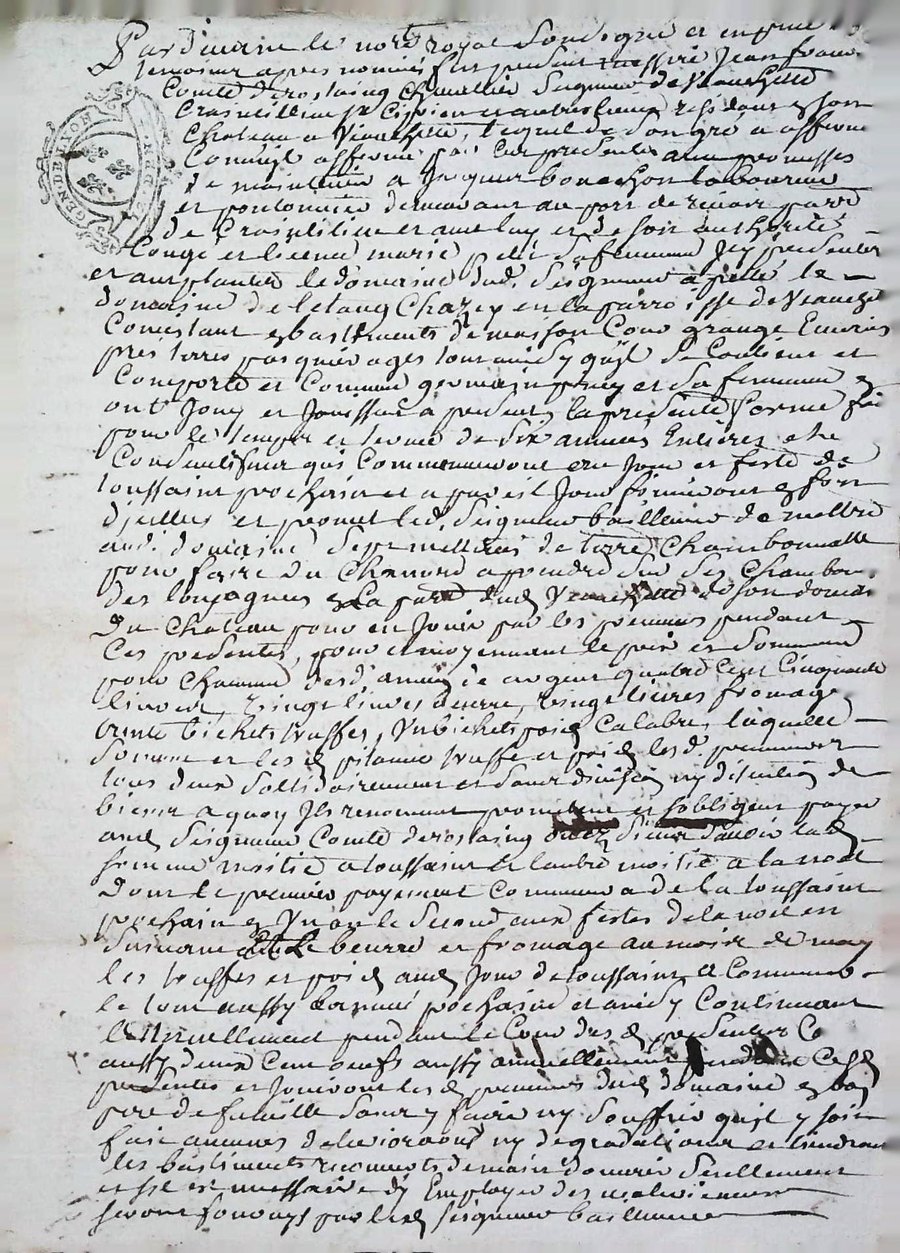 Pardevant le nore royal soussigné et en presence des
temoins apres nommés fut present messire Jean francois
Comte de rostaing chevallier Seigneur de Veauchette
Craintilleux et autres lieux residant en son
Chateau a Veauchette, lequel de son gré a affermé
comme il afferme par ces presentes avec promesses
de maintenir a Jacques bouchon laboureur
et pontonnier demeurant au port de rivas parre
de Craintilleux et avec luy et de son authorité
Congé et licence marie petit sa femme Icy presentes
et acceptantes le domaine dud. Seigneur apellé le
domaine de letang Chazey en la parroisse de Veauche
Consistant en bastiments de maison Cour grange Ecuries
prés terres pasquerages tout ainsy quil se Contient et
Comporte et Comme germain et sa femme
ont Jouy et Jouissent a present, la presente ferme faite
pour le temps et terme de six années Entieres et
Consecutives qui Commenceront au Jour et feste de
toussaint prochain et a pareil Jour finiront
dicelles et promet led. Seigneur bailleur de mettre
aud. domaine sept metterés de terre Chambonnalle
pour faire du Chanvre a prendre sur ses Chambons
des loupagnes en la parre dud. Veauchette de son domaine
du Chateau pour en Jouir par les preneurs pendant
Ces presentes, pour et moyennant le prix et somme
pour chacune desd. années de argent quatre cent cinquante
livres, vingt livres beurre, vingt livres fromage
trente bichets truffes, un bichet poids Calabre, laquelle
somme et lesd. pitance truffe et poids lesd. preneurs
tous deux sollidairement et sans division ny discution de
biens a quoy Ils renoncent promettent et sobligent payer
aud. Seigneur Comte de rostaing scavoir lad.
somme moitié a toussaint et lautre moitié a la noel
dont le premier payement Commencera de la toussaint
prochaine en un an le second aux festes de la noel en
suivant et le beurre et fromage au mois de may
les truffes et poids aud. Jour de toussaint a Commencer
le tout aussy lannée prochaine et ainsy Continuant
annuellement pendant le Cour desd. presentes
aussy deux Cent oeufs aussy annuellement pendant Cesd.
presentes et Jouiront lesd. preneurs dud. domaine en bon
pere de famille sans y faire ny souffrir quil y soit
fait aucunes deteriorations ny degradations et tiendront
les bastiments recouverts de main douvrier seullement
et sil est necessaire dy Employer des materiaux
seront fournys par led. seigneur bailleur
GENERALITE DE LYON